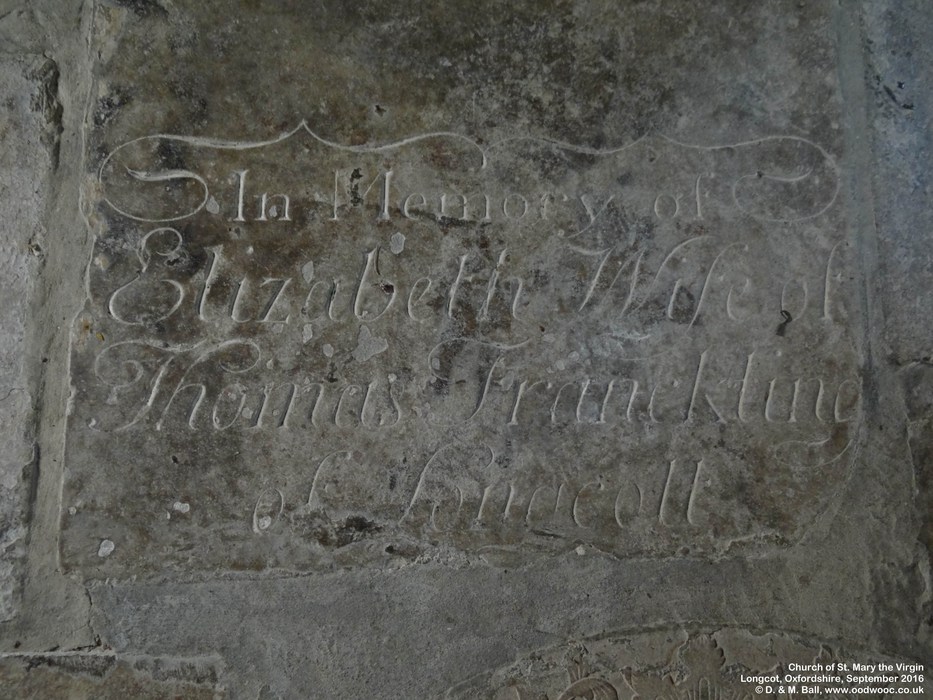 In Memory of
Elizabeth Wife of
Thomas Franckling
of Longcott
Church of St. Mary the Virgin
Longcot, Oxfordshire, September 2016
© D. & M. Ball, www.oodwooc.co.uk